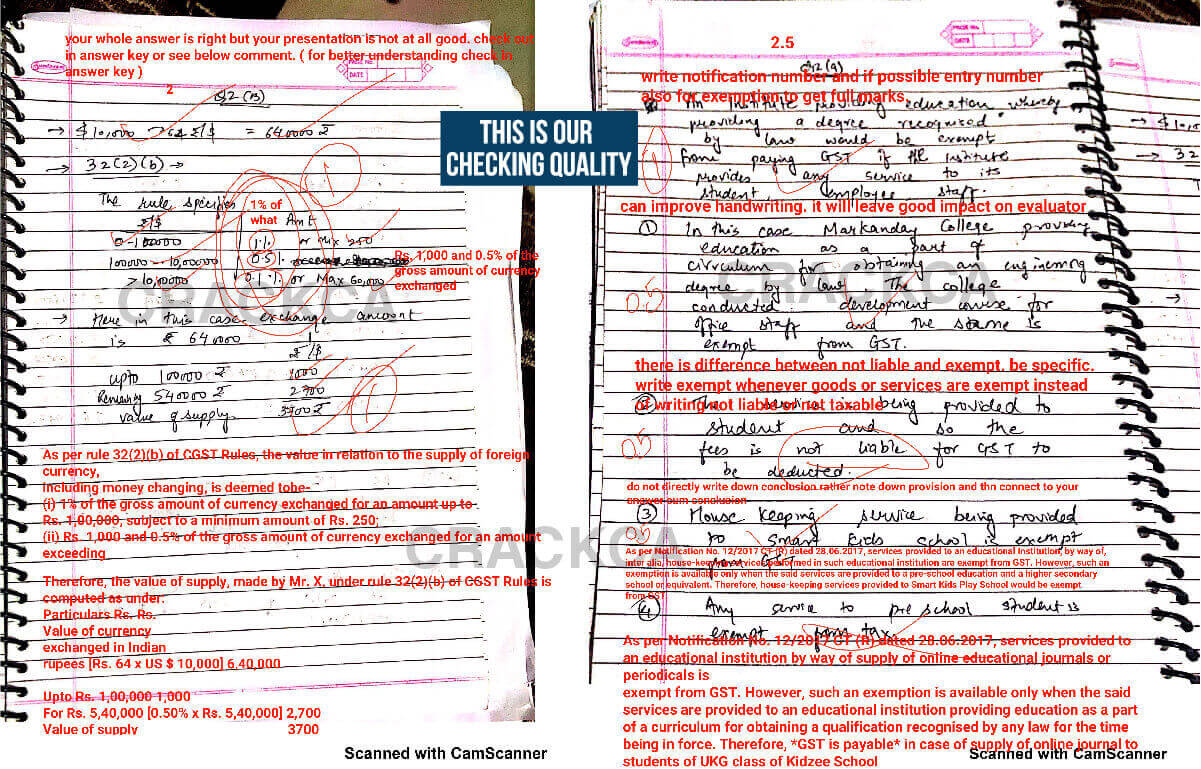 your whole answer is right but your presentation is not at all good. check out
in answer key or see below comment. ( for better understanding check in
answer key )
PAGE NO.
DATE
2
Q2 (B)
→ $ 10,000 × 64 ₹/$ = 640000 ₹
→ 32(2)(b) →
The rule specifies
1% of
what
₹/$ Amt
0-100000 1% or Min 250
100000 - 10,00000 0.5%
Rs. 1,000 and 0.5% of the
gross amount of currency
exchanged
> 10,00000 0.1% or Max 60,000
CRACKCA
→ Here in this case exchange amount
is ₹ 640000
₹/$
upto 100000 ₹ 1000
Remaining 540000 ₹ 2700
value of supply 3700 ₹
1
1
As per rule 32(2)(b) of CGST Rules, the value in relation to the supply of foreign
currency,
including money changing, is deemed tobe-
(i) 1% of the gross amount of currency exchanged for an amount up to
Rs. 1,00,000, subject to a minimum amount of Rs. 250;
(ii) Rs. 1,000 and 0.5% of the gross amount of currency exchanged for an amount
exceeding
Therefore, the value of supply, made by Mr. X, under rule 32(2)(b) of CGST Rules is
computed as under:
Particulars Rs. Rs.
Value of currency
exchanged in Indian
rupees [Rs. 64 x US $ 10,000] 6,40,000
Upto Rs. 1,00,000 1,000
For Rs. 5,40,000 [0.50% x Rs. 5,40,000] 2,700
Value of supply 3700
Scanned with CamScanner
THIS IS OUR
CHECKING QUALITY
CRACKCA
PAGE NO.
DATE
2.5
Q2(a)
write notification number and if possible entry number
also for exemption to get full marks
An Institute providing education whereby
providing a degree recognised
by law would be exempt
from paying GST if the institute
provides any service to its
student, employee staff.
1
can improve handwriting. it will leave good impact on evaluator
① In this case Markanday College providing
education as a part of
cirvculum for obtaining an enginering
degree by law The college
CRACKCA
0.5
conducted development course for
office staff and the stame is
exempt from GST.
there is difference between not liable and exempt. be specific.
write exempt whenever goods or services are exempt instead
of writing not liable or not taxable
② The service is being provided to
student and so the
0.5
fees is not liable for GST to
be deducted.
do not directly write down conclusion rather note down provision and thn connect to your
answer cum conclusion
③ House keeping service being provided
0.5
to Smart kids school is exempt
from GST
As per Notification No. 12/2017 CT (R) dated 28.06.2017, services provided to an educational Institution, by way of,
inter alia, house-keeping services performed in such educational institution are exempt from GST. However, such an
exemption is available only when the said services are provided to a pre-school education and a higher secondary
school or equivalent. Therefore, house-keeping services provided to Smart Kids Play School would be exempt
from GST
④ Any service to pre school student is
exempt from tax.
As per Notification No. 12/2017 CT (R) dated 28.06.2017, services provided to
an educational institution by way of supply of online educational journals or
periodicals is
exempt from GST. However, such an exemption is available only when the said
services are provided to an educational institution providing education as a part
of a curriculum for obtaining a qualification recognised by any law for the time
being in force. Therefore, *GST is payable* in case of supply of online journal to
students of UKG class of Kidzee School
Scanned with CamScanner
→ $ 10,00
→ 32